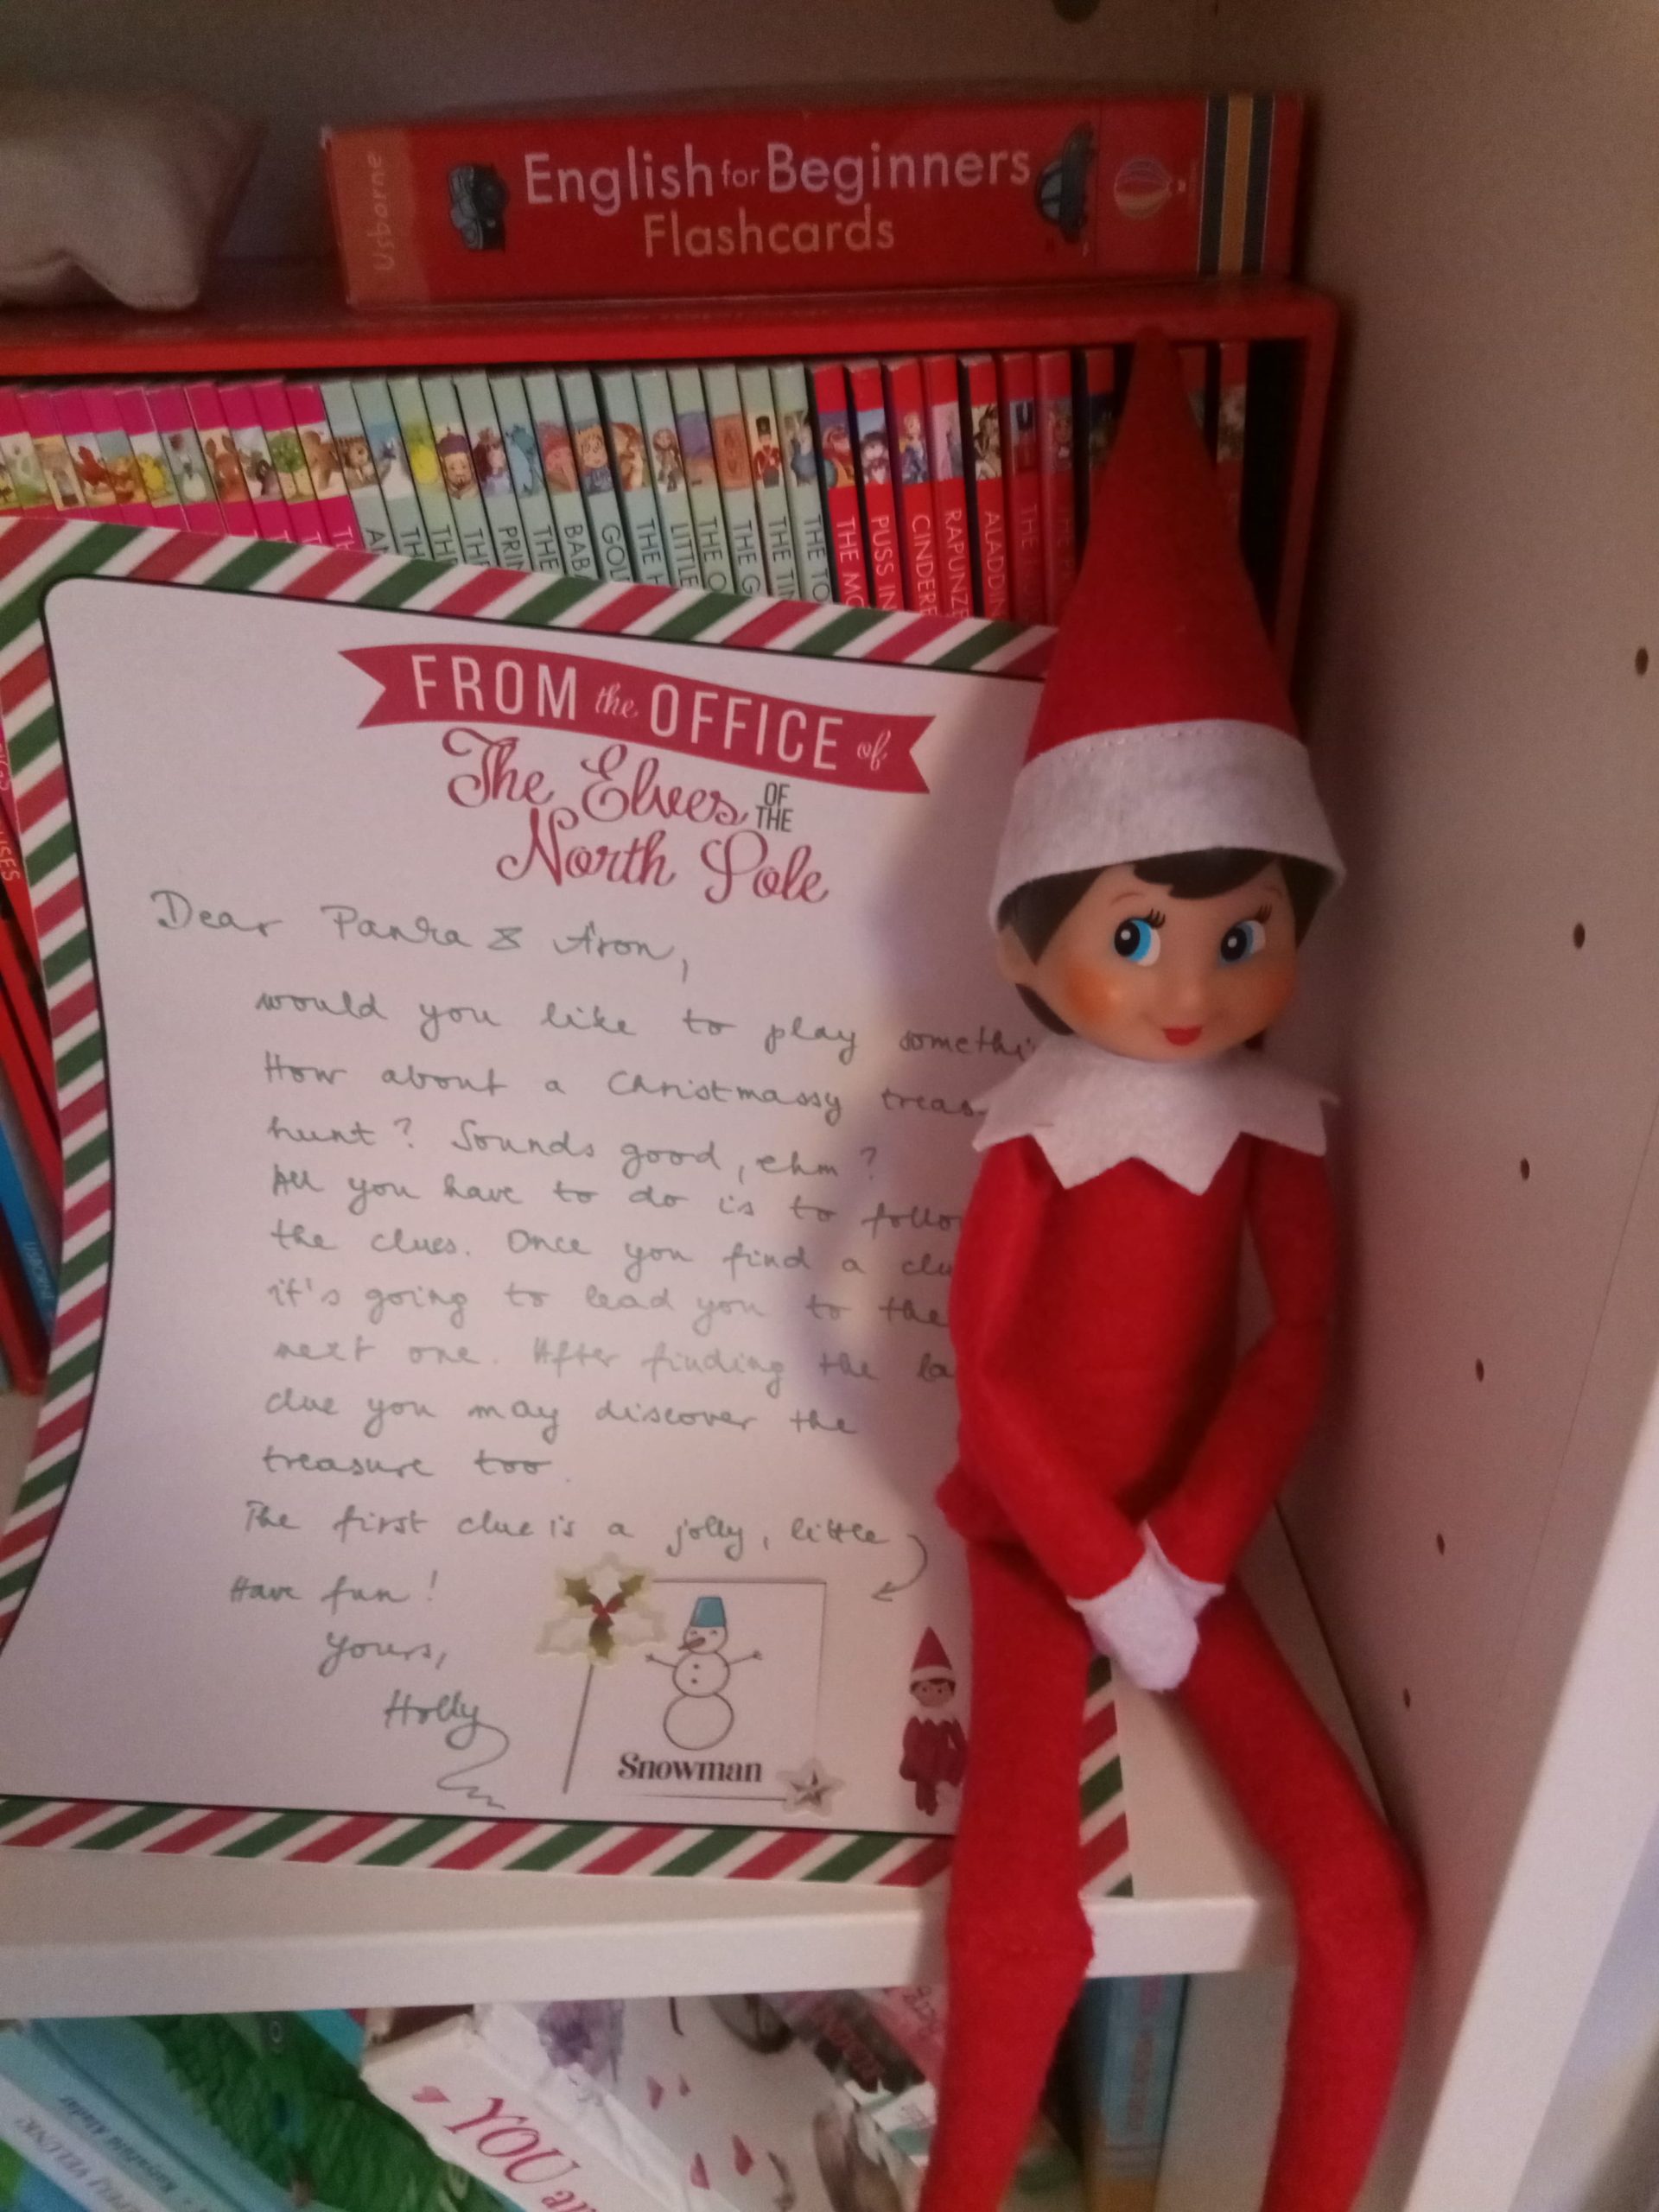 Usborne
English for Beginners
Flashcards
THE
PRIN
THE
BAB
GOL
THE H
LITTLE
THE O
THE G
THE TIN
THE TO
THE MO
PUSS IN
CINDERE
RAPUNZE
ALADDIN
FROM the OFFICE of
The Elves OF THE
North Pole
Dear Panka & Áron,
would you like to play somethi
How about a Christmassy treas
hunt? Sounds good, ehm?
All you have to do is to follo
the clues. Once you find a clu
it's going to lead you to the
next one. After finding the la
clue you may discover the
treasure too.
The first clue is a jolly, little
Have fun!
Yours,
Holly
Snowman
YOU